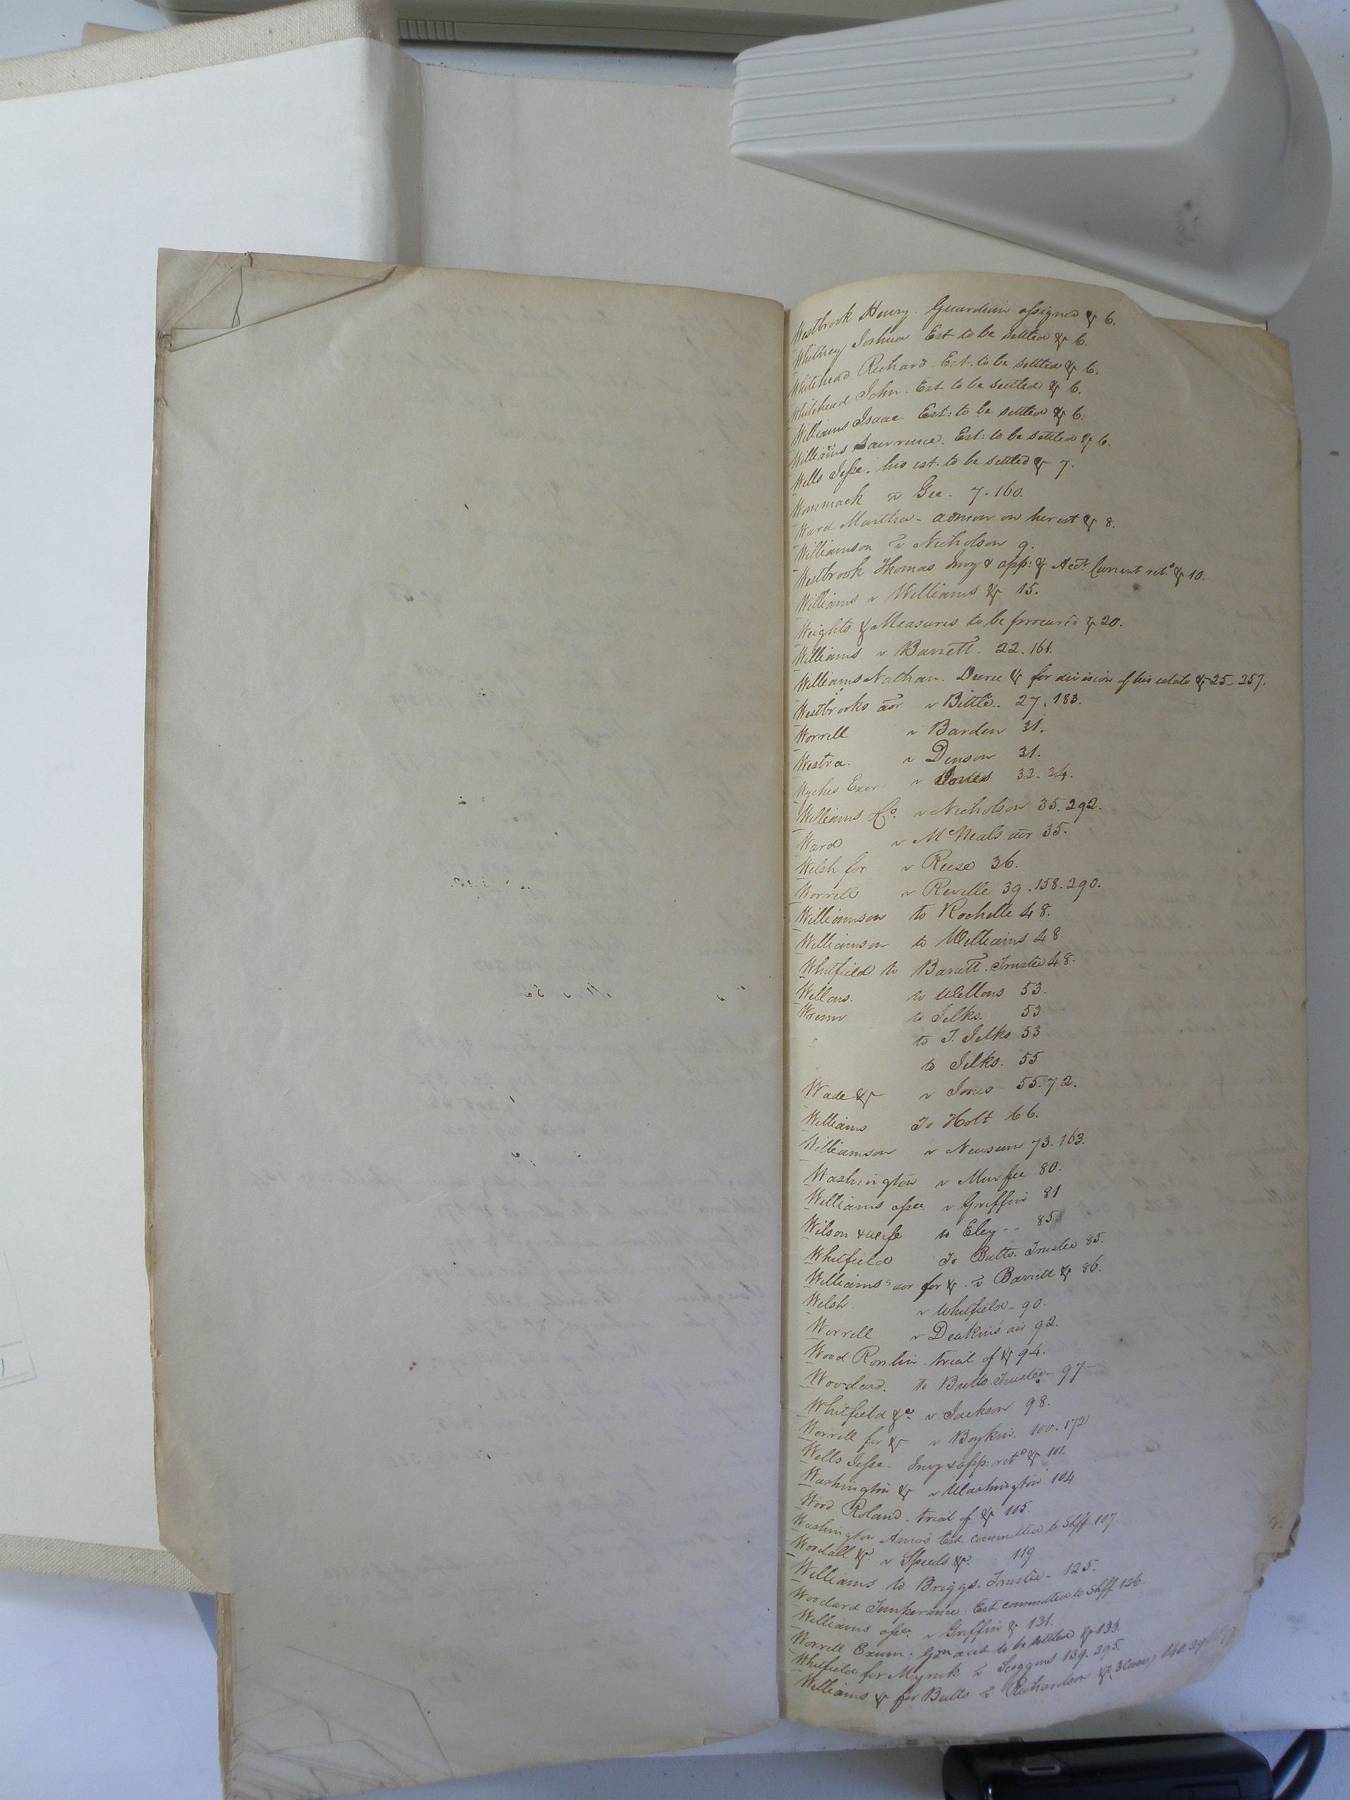 Westbrook Henry. Guardian assigned &c 6.
Whitney Joshua Est to be settled &c 6.
Whitehead Richard Est. to be settled &c 6.
Whitehead John. Est. to be settled &c 6.
Williams Isaac Est: to be settled &c 6.
Williams Lawrence. Est: to be settled &c 6.
Wells Jesse. his est. to be settled &c 7.
Wommack v Gee. 7. 160.
Ward Martha - admon on her est &c 8.
Williamson v Nicholson 9.
Westbrook Thomas Invy & app: & Acct Current retd &c 10.
Williams v Williams &c 15.
Weights & Measures to be procured &c 20.
Williams v Barrett. 22. 161.
Williams Nathan. Decree &c for division of his estate &c 25. 257.
Westbrooks aor v Bittle. 27. 183.
Worrell v Barden 31.
Westra. v Denson 31.
Wyches Exor v Jones 32. 34.
Williams & Co. v Nicholson 35. 292.
Ward v McNeals air 35.
Welsh for v Reese 36.
Worrell v Reville 39. 158. 290.
Williamson to Rochelle 48.
Williamson to Williams 48
Whitfield to Barrett. Trustee 48.
Wellons. to Wellons 53.
Wrenn to Jelks. 53
to T. Jelks 53
to Jelks. 55
Wade &c v Jones 55. 72.
Williams To Holt 66.
Williamson v Newsum 73. 163.
Washington v Murfee 80.
Williams assee v Griffin 81
Wilson & wife to Eley -- 85
Whitfield To Butts. Trustee 85.
Williams's aor for &c v Barrett &c 86.
Welsh v Whitfield - 90.
Worrell v Deakins air 92.
Wood Ronlin. trial of &c 94.
Woodard. to Butts. Trustee - 97 -
Whitfield &c v Jackson 98.
Worrell for &c v Boykin. 100. 172
Wells Jesse. Invy & app: retd &c 101.
Washington &c v Washington 104
Wood Roland. trial of &c 105.
Washington Amos Est. committed to Shff 107.
Woodall &c v Speed &c. 119
Williams to Briggs. Trustee - 125.
Woodard Temperance. Est committed to Shff 126.
Williams assee. v Griffin &c 131.
Worrell Exum. Gdn acct to be settled &c 133.
Whitfield for Myrick v Scoggins 139. 295.
Williams &c for Butts v Richardson &c 3 Cases 140.